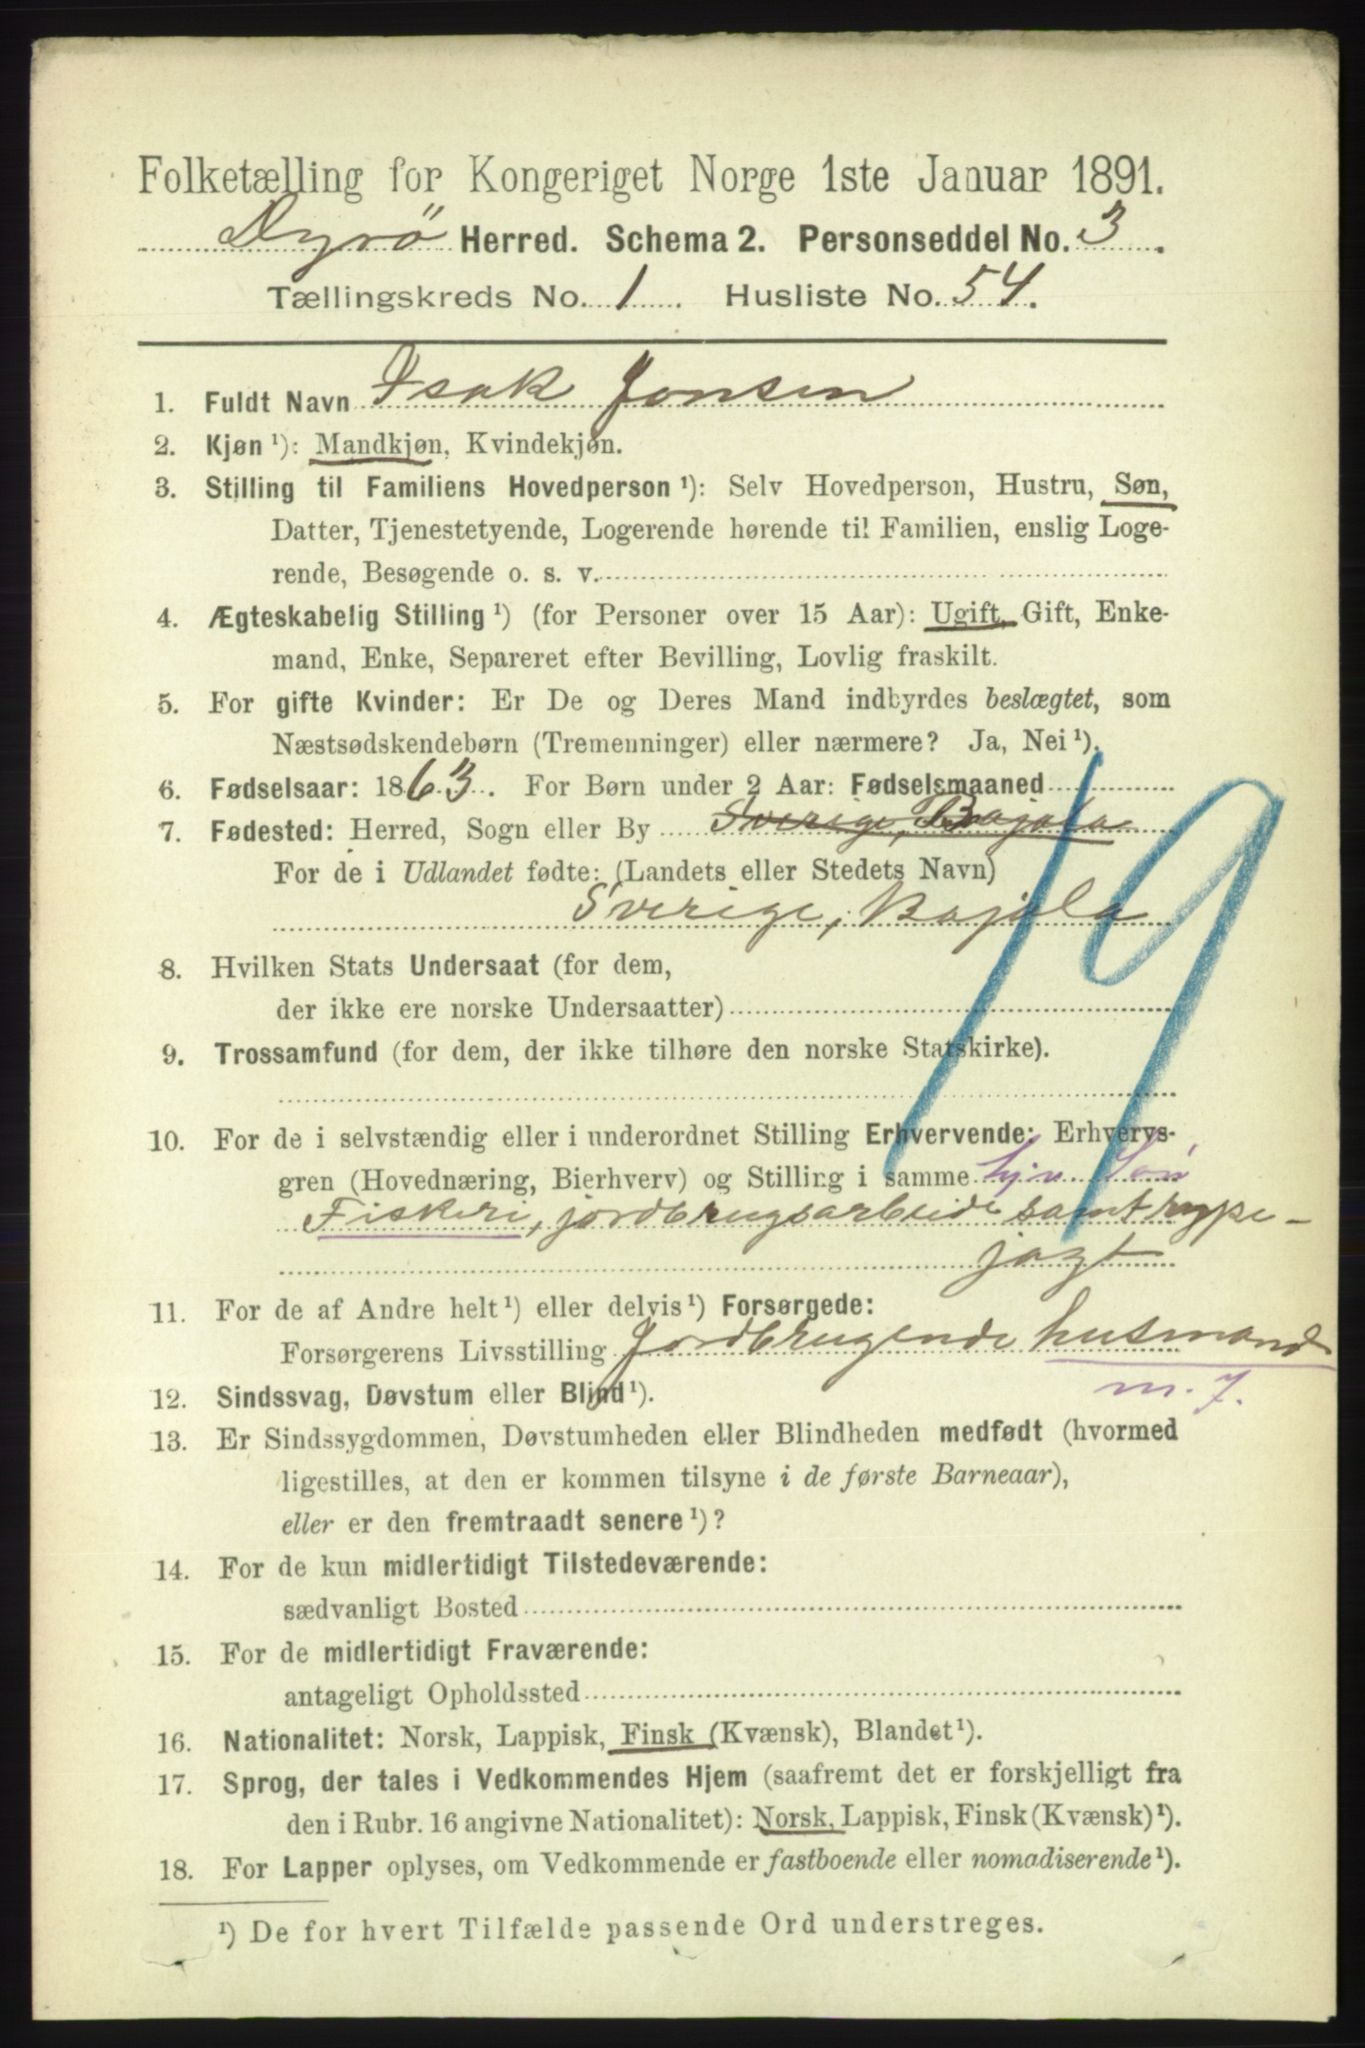 Folketælling for Kongeriget Norge 1ste Januar 1891.
Dyrö Herred. Schema 2. Personseddel No. 3.
Tællingskreds No. 1. Husliste No. 54.
1. Fuldt Navn Isak Jonsen
2. Kjøn ¹): Mandkjøn, Kvindekjøn.
3. Stilling til Familiens Hovedperson ¹): Selv Hovedperson, Hustru, Søn,
Datter, Tjenestetyende, Logerende hørende til Familien, enslig Loge-
rende, Besøgende o. s. v.
4. Ægteskabelig Stilling ¹) (for Personer over 15 Aar): Ugift, Gift, Enke-
mand, Enke, Separeret efter Bevilling, Lovlig fraskilt.
5. For gifte Kvinder: Er De og Deres Mand indbyrdes beslægtet, som
Næstsødskendebørn (Tremenninger) eller nærmere? Ja, Nei ¹).
6. Fødselsaar: 1863. For Børn under 2 Aar: Fødselsmaaned
7. Fødested: Herred, Sogn eller By Sverige, Bajala
For de i Udlandet fødte: (Landets eller Stedets Navn)
Sverige, Bajala
8. Hvilken Stats Undersaat (for dem,
der ikke ere norske Undersaatter)
9. Trossamfund (for dem, der ikke tilhøre den norske Statskirke).
10. For de i selvstændig eller i underordnet Stilling Erhvervende: Erhvervs-
gren (Hovednæring, Bierhverv) og Stilling i samme hjv. Søn
Fiskeri, jordbrugsarbeide samt rype-
jagt
11. For de af Andre helt ¹) eller delvis ¹) Forsørgede:
Forsørgerens Livsstilling Jordbrugende husmand
m. 7.
12. Sindssvag, Døvstum eller Blind ¹).
13. Er Sindssygdommen, Døvstumheden eller Blindheden medfødt (hvormed
ligestilles, at den er kommen tilsyne i de første Barneaar),
eller er den fremtraadt senere ¹)?
14. For de kun midlertidigt Tilstedeværende:
sædvanligt Bosted
15. For de midlertidigt Fraværende:
antageligt Opholdssted
16. Nationalitet: Norsk, Lappisk, Finsk (Kvænsk), Blandet ¹).
17. Sprog, der tales i Vedkommendes Hjem (saafremt det er forskjelligt fra
den i Rubr. 16 angivne Nationalitet): Norsk, Lappisk, Finsk (Kvænsk) ¹).
18. For Lapper oplyses, om Vedkommende er fastboende eller nomadiserende ¹).
¹) De for hvert Tilfælde passende Ord understreges.
19